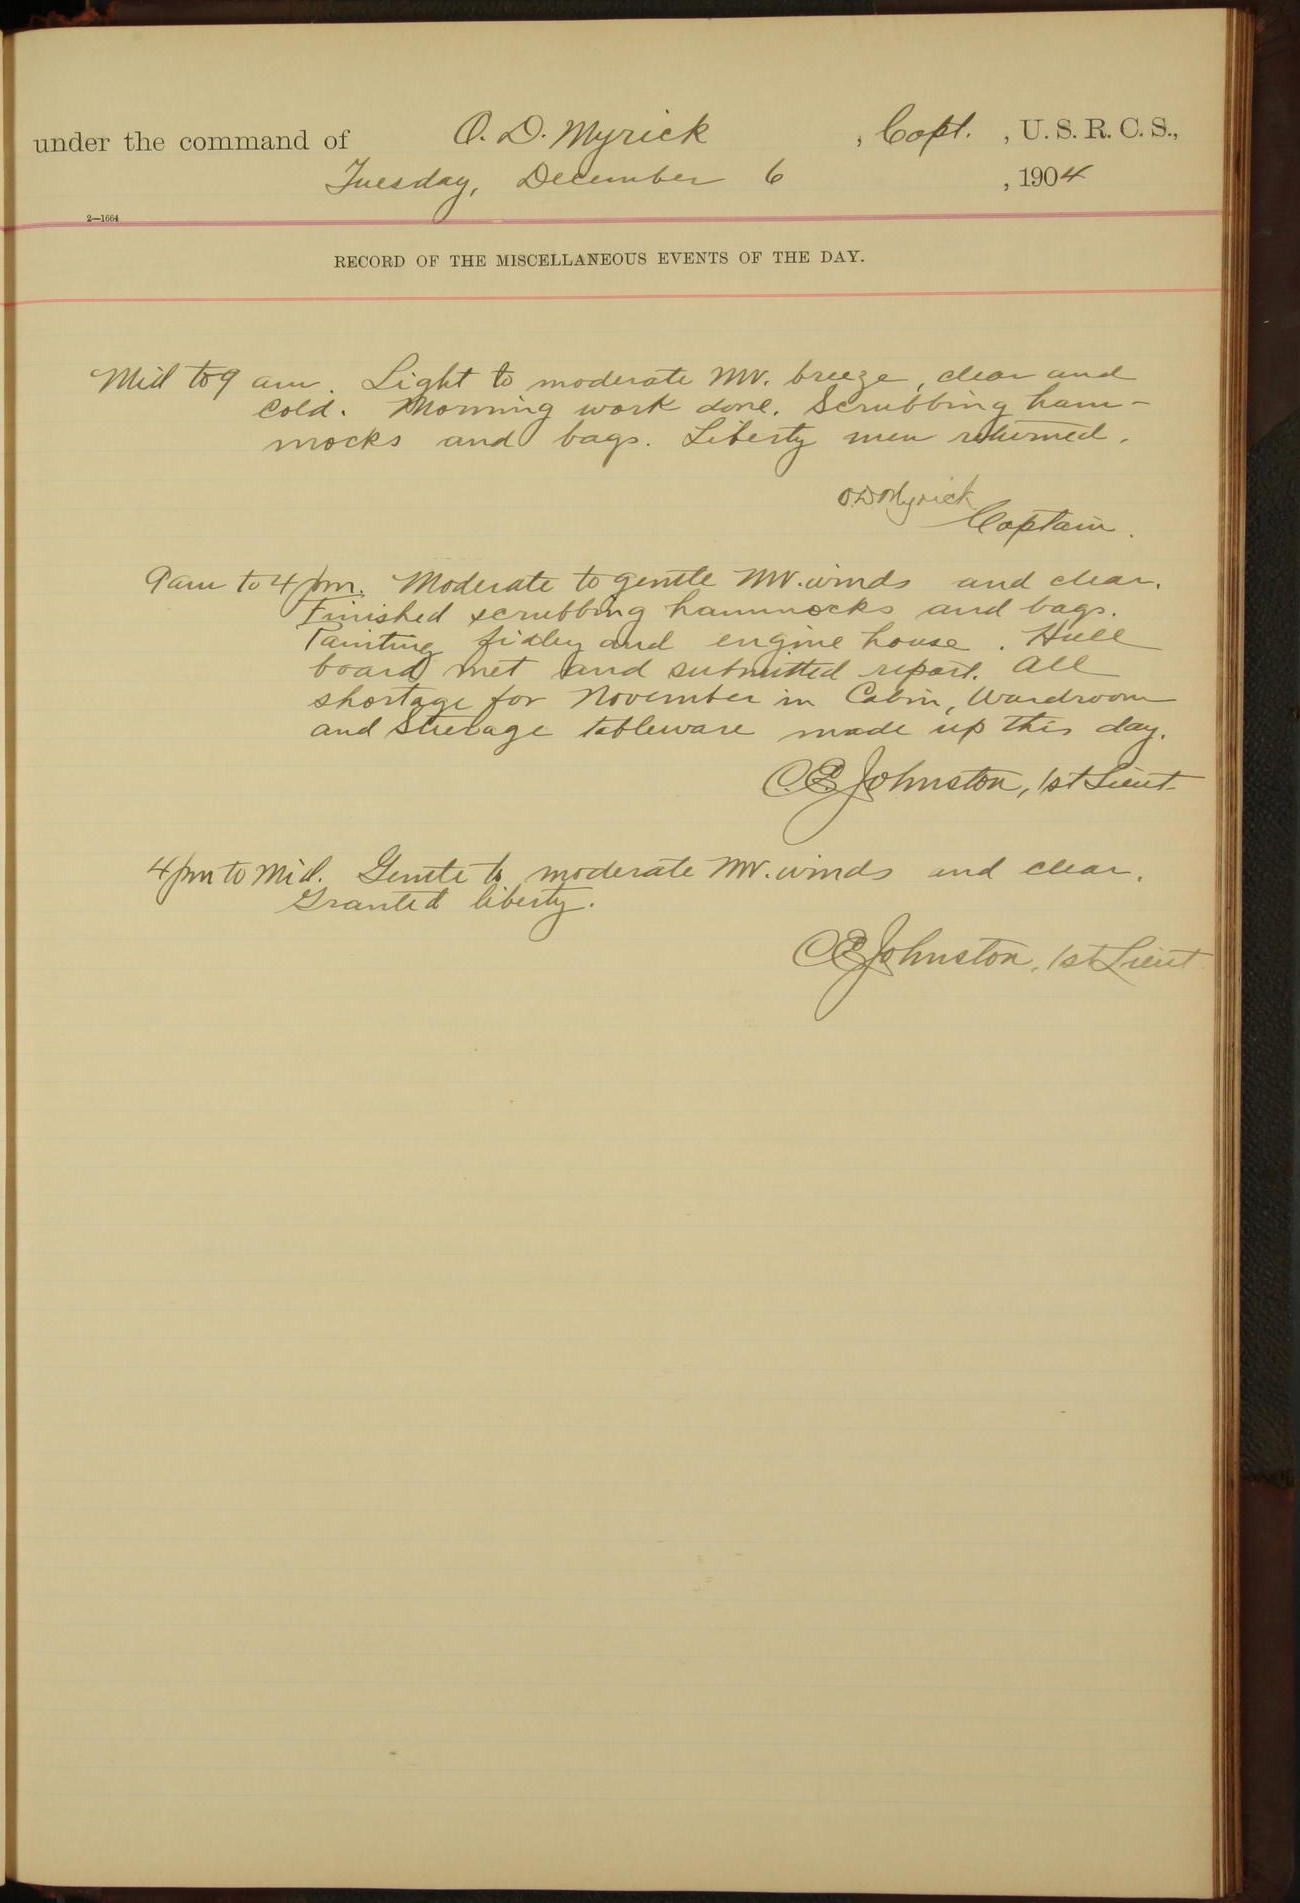 under the command of O. D. Myrick, Capt., U. S. R. C. S.,
Tuesday, December 6, 1904
2—1664
RECORD OF THE MISCELLANEOUS EVENTS OF THE DAY.
Mid to 9 am. Light to moderate NW. breeze, clear and
cold. Morning work done. Scrubbing ham-
mocks and bags. Liberty men returned.
O D Myrick
Captain.
9 am to 4 pm. Moderate to gentle NW. winds and clear.
Finished scrubbing hammocks and bags.
Painting fidley and engine house. Hull
board met and submitted report. All
shortage for November in Cabin, Wardroom
and Steerage tableware made up this day.
C. E. Johnston, 1st Lieut.
4 pm to Mid. Gentle to moderate NW. winds and clear.
Granted liberty.
C E Johnston, 1st Lieut